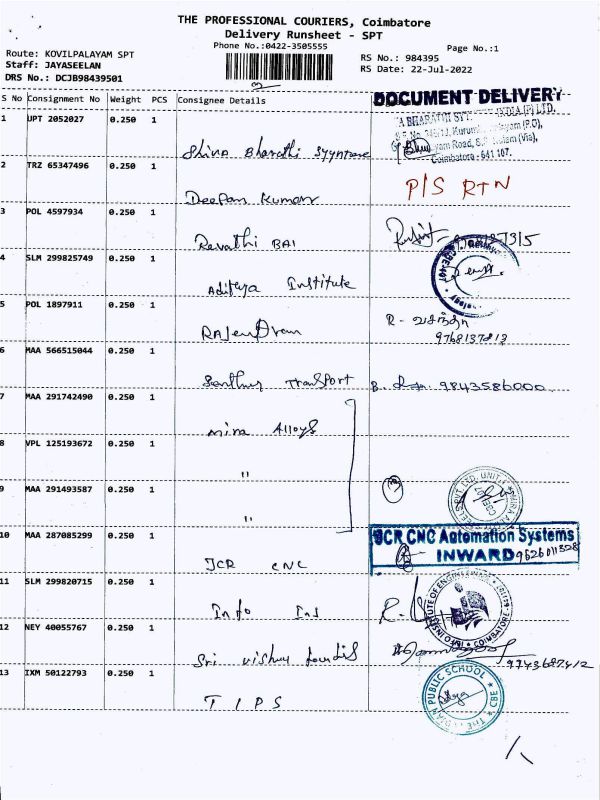 THE PROFESSIONAL COURIERS, Coimbatore
Delivery Runsheet - SPT
Phone No.:0422-3505555
Page No.:1
Route: KOVILPALAYAM SPT
Staff: JAYASEELAN
DRS No.: DCJB98439501
RS No.: 984395
RS Date: 22-Jul-2022
S No Consignment No Weight PCS Consignee Details
DOCUMENT DELIVERY
1 UPT 2052027 0.250 1
Coimbatore - 641 107.
Shiva Bharathi
2 TRZ 65347496 0.250 1
P/S RTN
Deepan Kumar
3 POL 4597934 0.250 1
Revathi BAI
4 SLM 299825749 0.250 1
Aditya Institute
5 POL 1897911 0.250 1
R- வசந்தா
Rajendran
9768137813
6 MAA 566515044 0.250 1
Santhur Transport 9843586000
7 MAA 291742490 0.250 1
Mira Alloys
8 VPL 125193672 0.250 1
"
9 MAA 291493587 0.250 1
"
10 MAA 287085299 0.250 1
JCR CNC Automation Systems
INWARD 9626011328
JCR CNC
11 SLM 299820715 0.250 1
Info Ins
INFO INSTITUTE OF ENGINEERING
COIMBATORE
12 NEY 40055767 0.250 1
Sri Vishnu
9743687412
13 IXM 50122793 0.250 1
TIPS
THE INDIAN PUBLIC SCHOOL
CBE